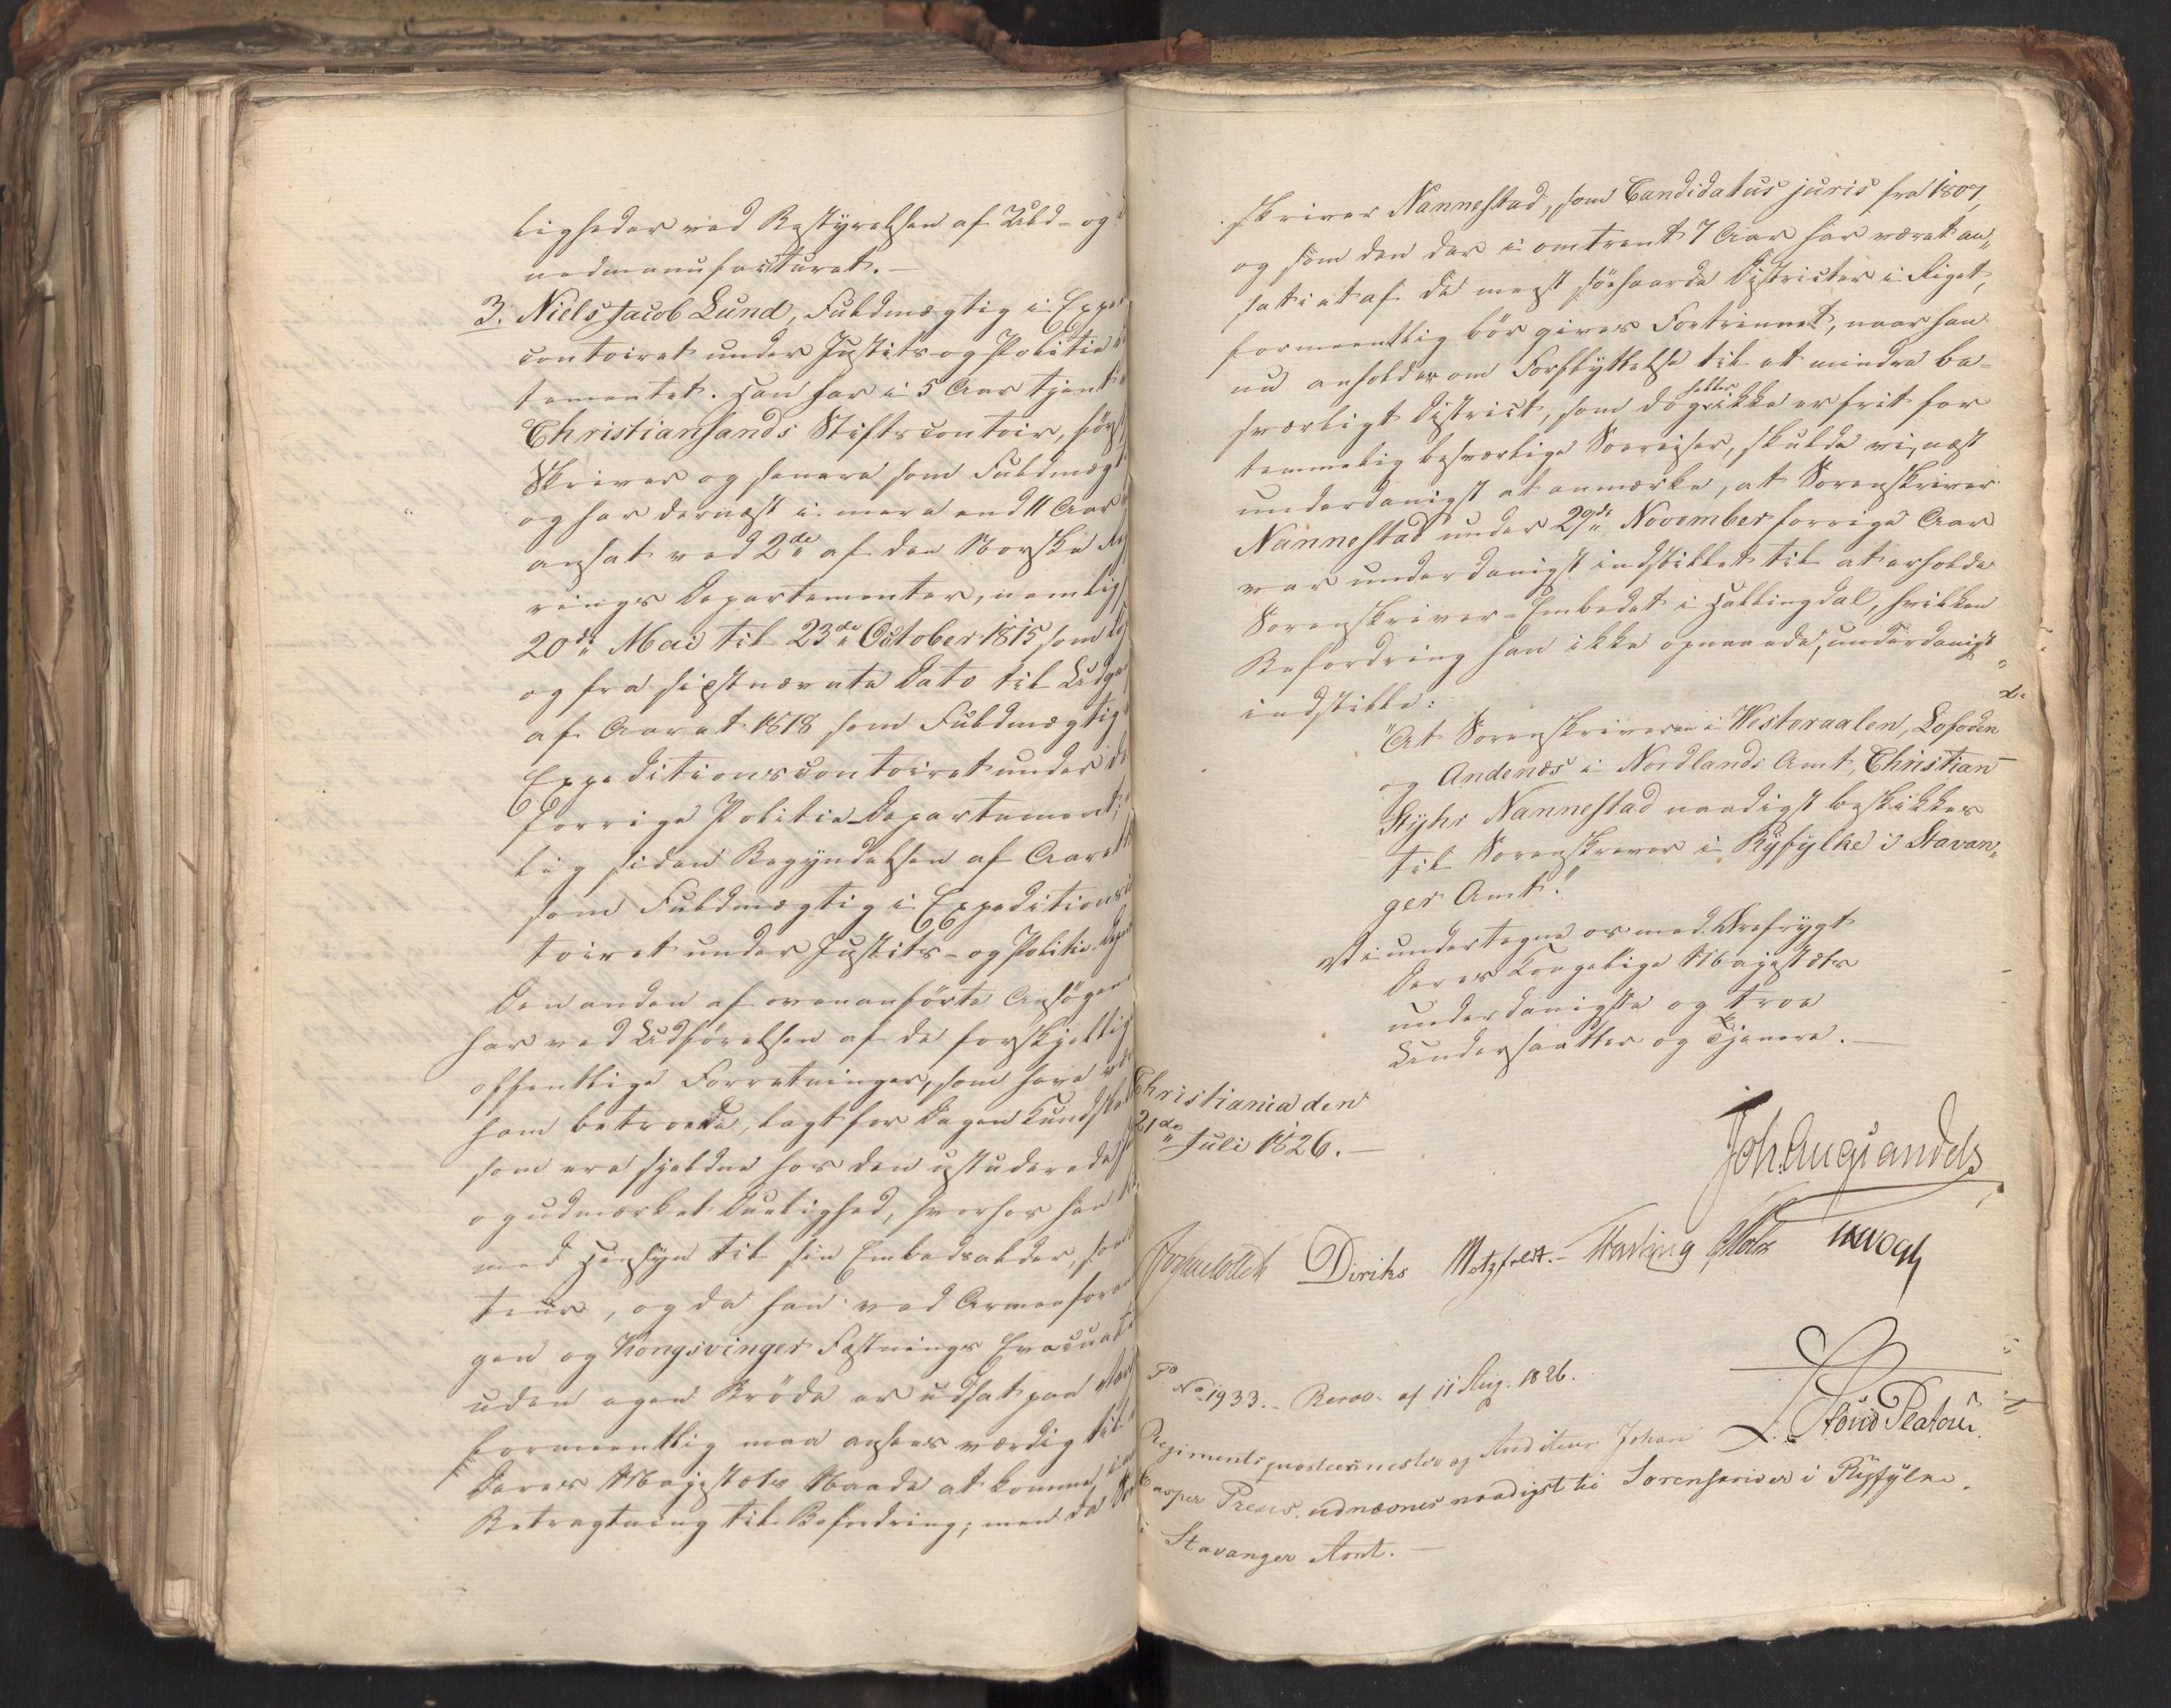 ligheder ved Bestyrelsen af Uld- og
nedmanufacturet.—
3. Niels Jacob Lund, Fuldmægtig i Expe
contoiret under Justits- og Politie
tementet. Han har i 5 Aar tjent
Christiansands Stiftscontoir, først
Skriver og senere som Fuldmægt
og har dernæst i mere end 11 Aar
ansat ved 2de af den Norske Re
rings Departementer, nemlig
20de Mai til 23de October 1815 som
og fra sidstnævnte Dato til Udga
af Aaret 1818 som Fuldmægtig
Expeditionscontoiret under de
forrige Politie-Departement;
lig siden Begyndelsen af Aaret
som Fuldmægtig i Expeditions
toiret under Justits- og Politie-Depar
Den anden af ovenanførte Ansøgere
har ved Udførelsen af de forskjellig
offentlige Forretninger, som have vær
ham betroede, lagt for Dagen Kundskab
som ere sjeldne hos den ustuderede
og udmærket Duelighed, hvorhos han
med Hensyn til sin Embedsalder, som
teur, og da han ved Armeeforan
gen og Kongsvinger Fæstnings Evacuati
uden egen Brøde er udsat paa
formeentlig maa ansees værdig til
Deres Majestæts Naade at komme i
Betragtning til Befordring; men da Sor
skriver Nannestad, som Candidatus juris fra 1807,
og som den der i omtrent 7 Aar har været an„
sat i et af de meest søehaarde Districter i Riget,
formeentlig bør gives Fortrinnet, naar han
nu anholder om Forflyttelse til et mindre be-
sværligt District, som dog heller ikke er frit for
temmelig besværlige Søereiser, skulde vi, næst
underdanigst at anmærke, at Sorenskriver
Nannestad under 29de November forrige Aar
var underdanigst indstillet til at erholde
Sorenskriver-Embedet i Hallingdal, hvilken
Befordring han ikke opnaaede, underdanigst
indstille:
"At Sorenskriveren i Westeraalen, Lofoden
og Andenæs i Nordlands Amt, Christian
Styhr Nannestad naadigst beskikkes
til Sorenskriver i Ryfylke i Stavan„
ger Amt."
Vi undertegne os med Ærefrygt
Deres Kongelige Majestæts
underdanigste og troe
Undersaatter og Tjenere.—
Christiania den
21de Juli 1826.—
Joh. Aug. Sandels
Diriks Motzfeldt.— Treschow Holst
L. Stoud Platou
No 1933.— Resol. af 11 Aug. 1826.
Regimentsqvarteermester og Auditeur Johan
Casper Preus udnævnes naadigst til Sorenskriver i Ryfylke
i Stavanger Amt.—